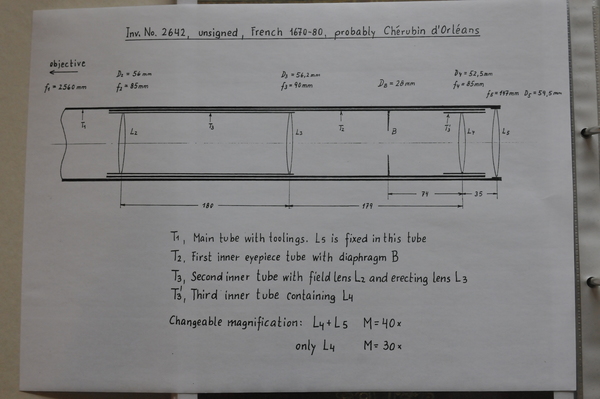 Inv. No. 2642, unsigned, French 1670-80, probably Chérubin d'Orléans
objective
f₁ = 2560mm
D₂ = 56mm
f₂ = 85mm
D₃ = 56,2mm
f₃ = 90mm
D_B = 28mm
D₄ = 52,5mm
f₄ = 85mm
f₅ = 147mm D₅ = 59,5mm
T₁
L₂
T₃
L₃
T₂
B
T₃'
L₄
L₅
74
35
180
179
T₁, Main tube with toolings. L₅ is fixed in this tube
T₂, First inner eyepiece tube with diaphragm B
T₃, Second inner tube with field lens L₂ and erecting lens L₃
T₃', Third inner tube containing L₄
Changeable magnification: L₄+L₅ M=40x
only L₄ M=30x